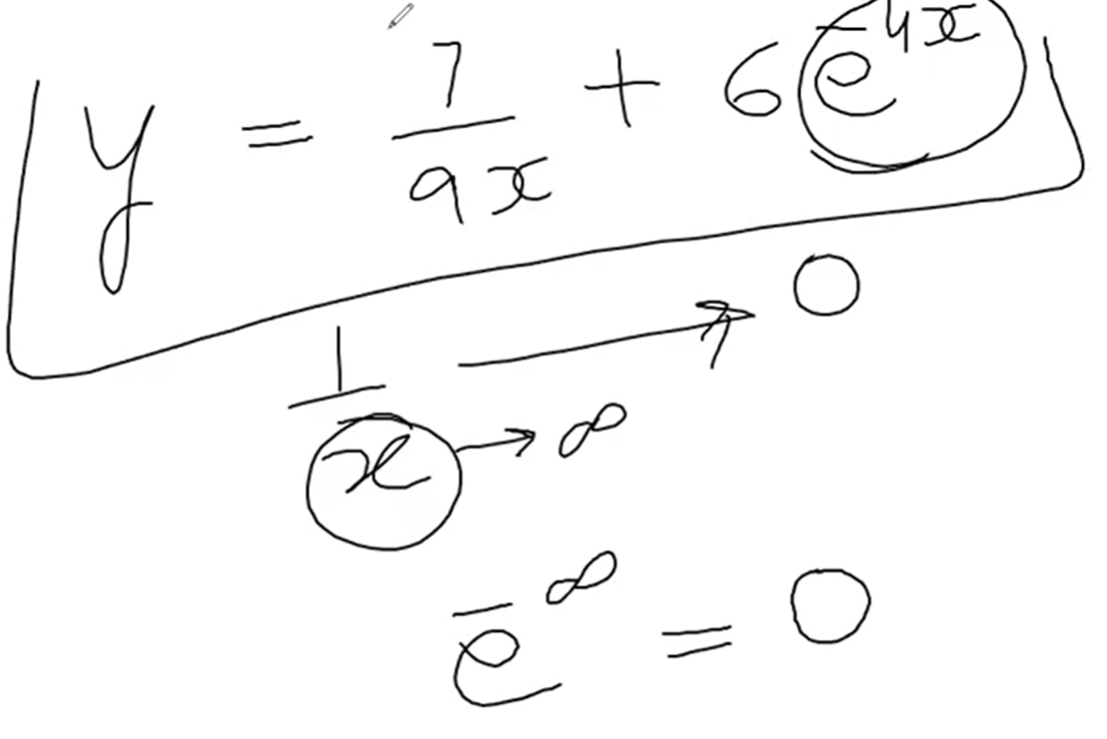 y = 7/9x + 6e^-4x
1/x → 0
x → ∞
e^-∞ = 0